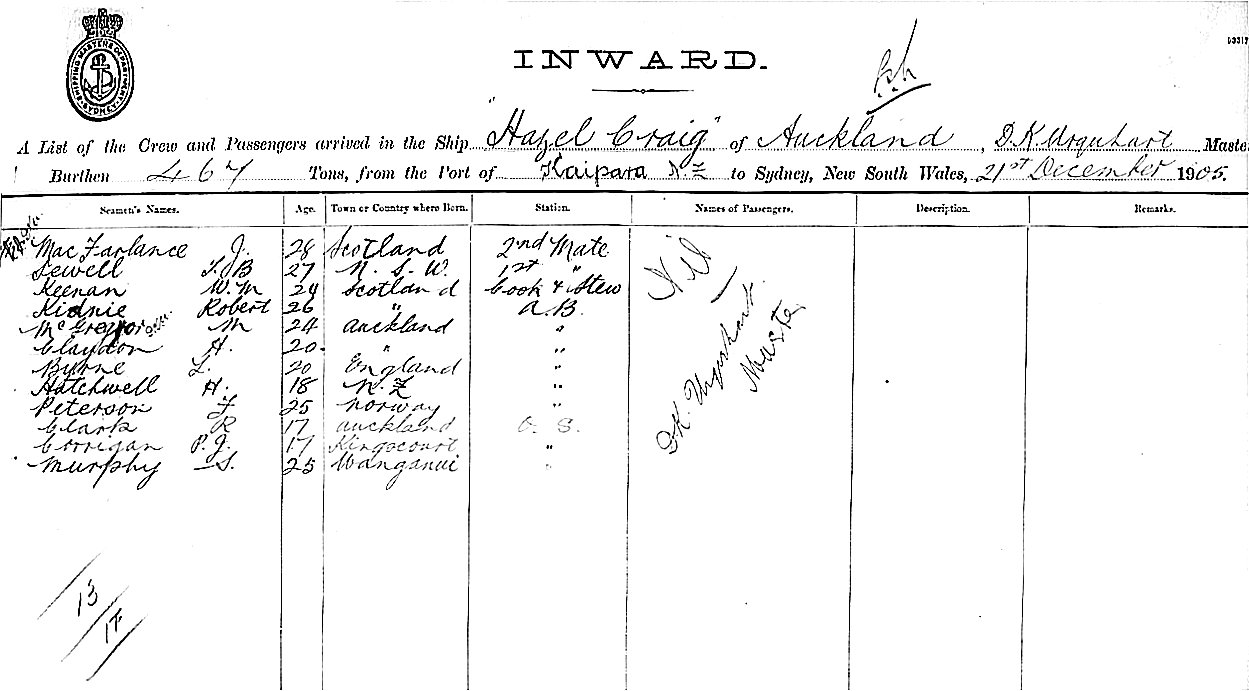 SHIPPING MASTERS DEPARTMENT SYDNEY
INWARD.
A List of the Crew and Passengers arrived in the Ship "Hazel Craig" of Auckland, D. K. Urquhart Maste
Burthen 467 Tons, from the Port of Kaipara N.Z to Sydney, New South Wales, 21st December 1905.
Seamen's Names. Age. Town or Country where Born. Station. Names of Passengers. Description. Remarks.
MacFarlance J. 28 Scotland 2nd Mate
Sewell T. B 27 N. S. W. 1st "
Keenan W. M 24 Scotland Cook & Stew
Kidnie Robert 26 " A. B.
McGregor M 24 Auckland "
Claydon H. 20 " "
Byrne L. 20 England "
Hatchwell H. 18 N. Z "
Peterson F 25 Norway "
Clark R 17 Auckland O. S.
Corrigan P. J. 17 Kingscourt "
Murphy S. 25 Wanganui "
Nil
D K. Urquhart.
Master
13